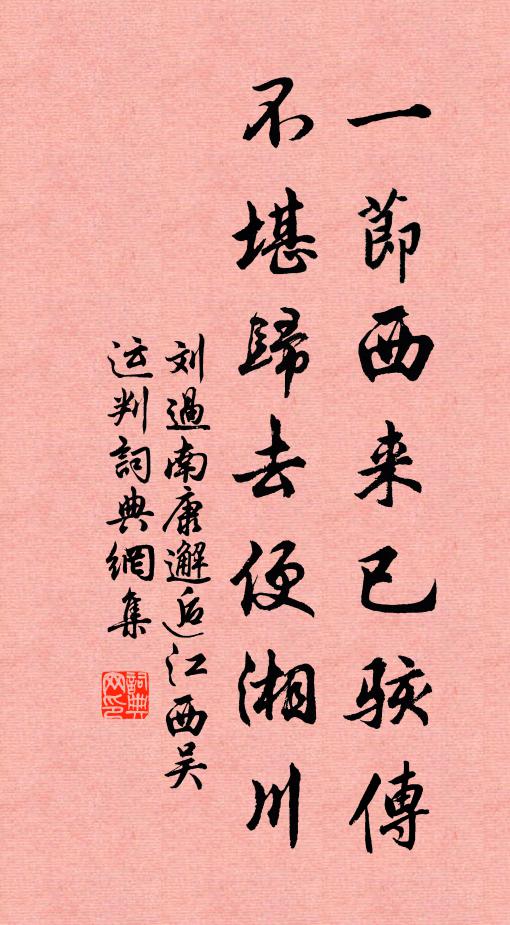 一節西来已駭傳
不堪歸去便湘川
刘過南康邂逅江西吴
运判詞典網集
詞典网印